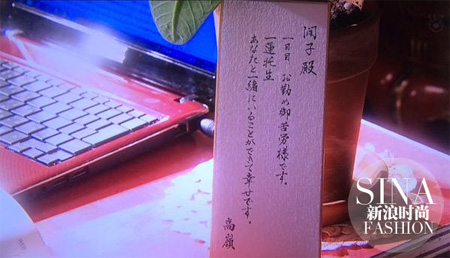 潤子殿
一日目 お勤め御苦労様です。
一蓮托生
あなたと一緒にいることができて幸せです。
高嶺
SINA
新浪时尚
FASHION